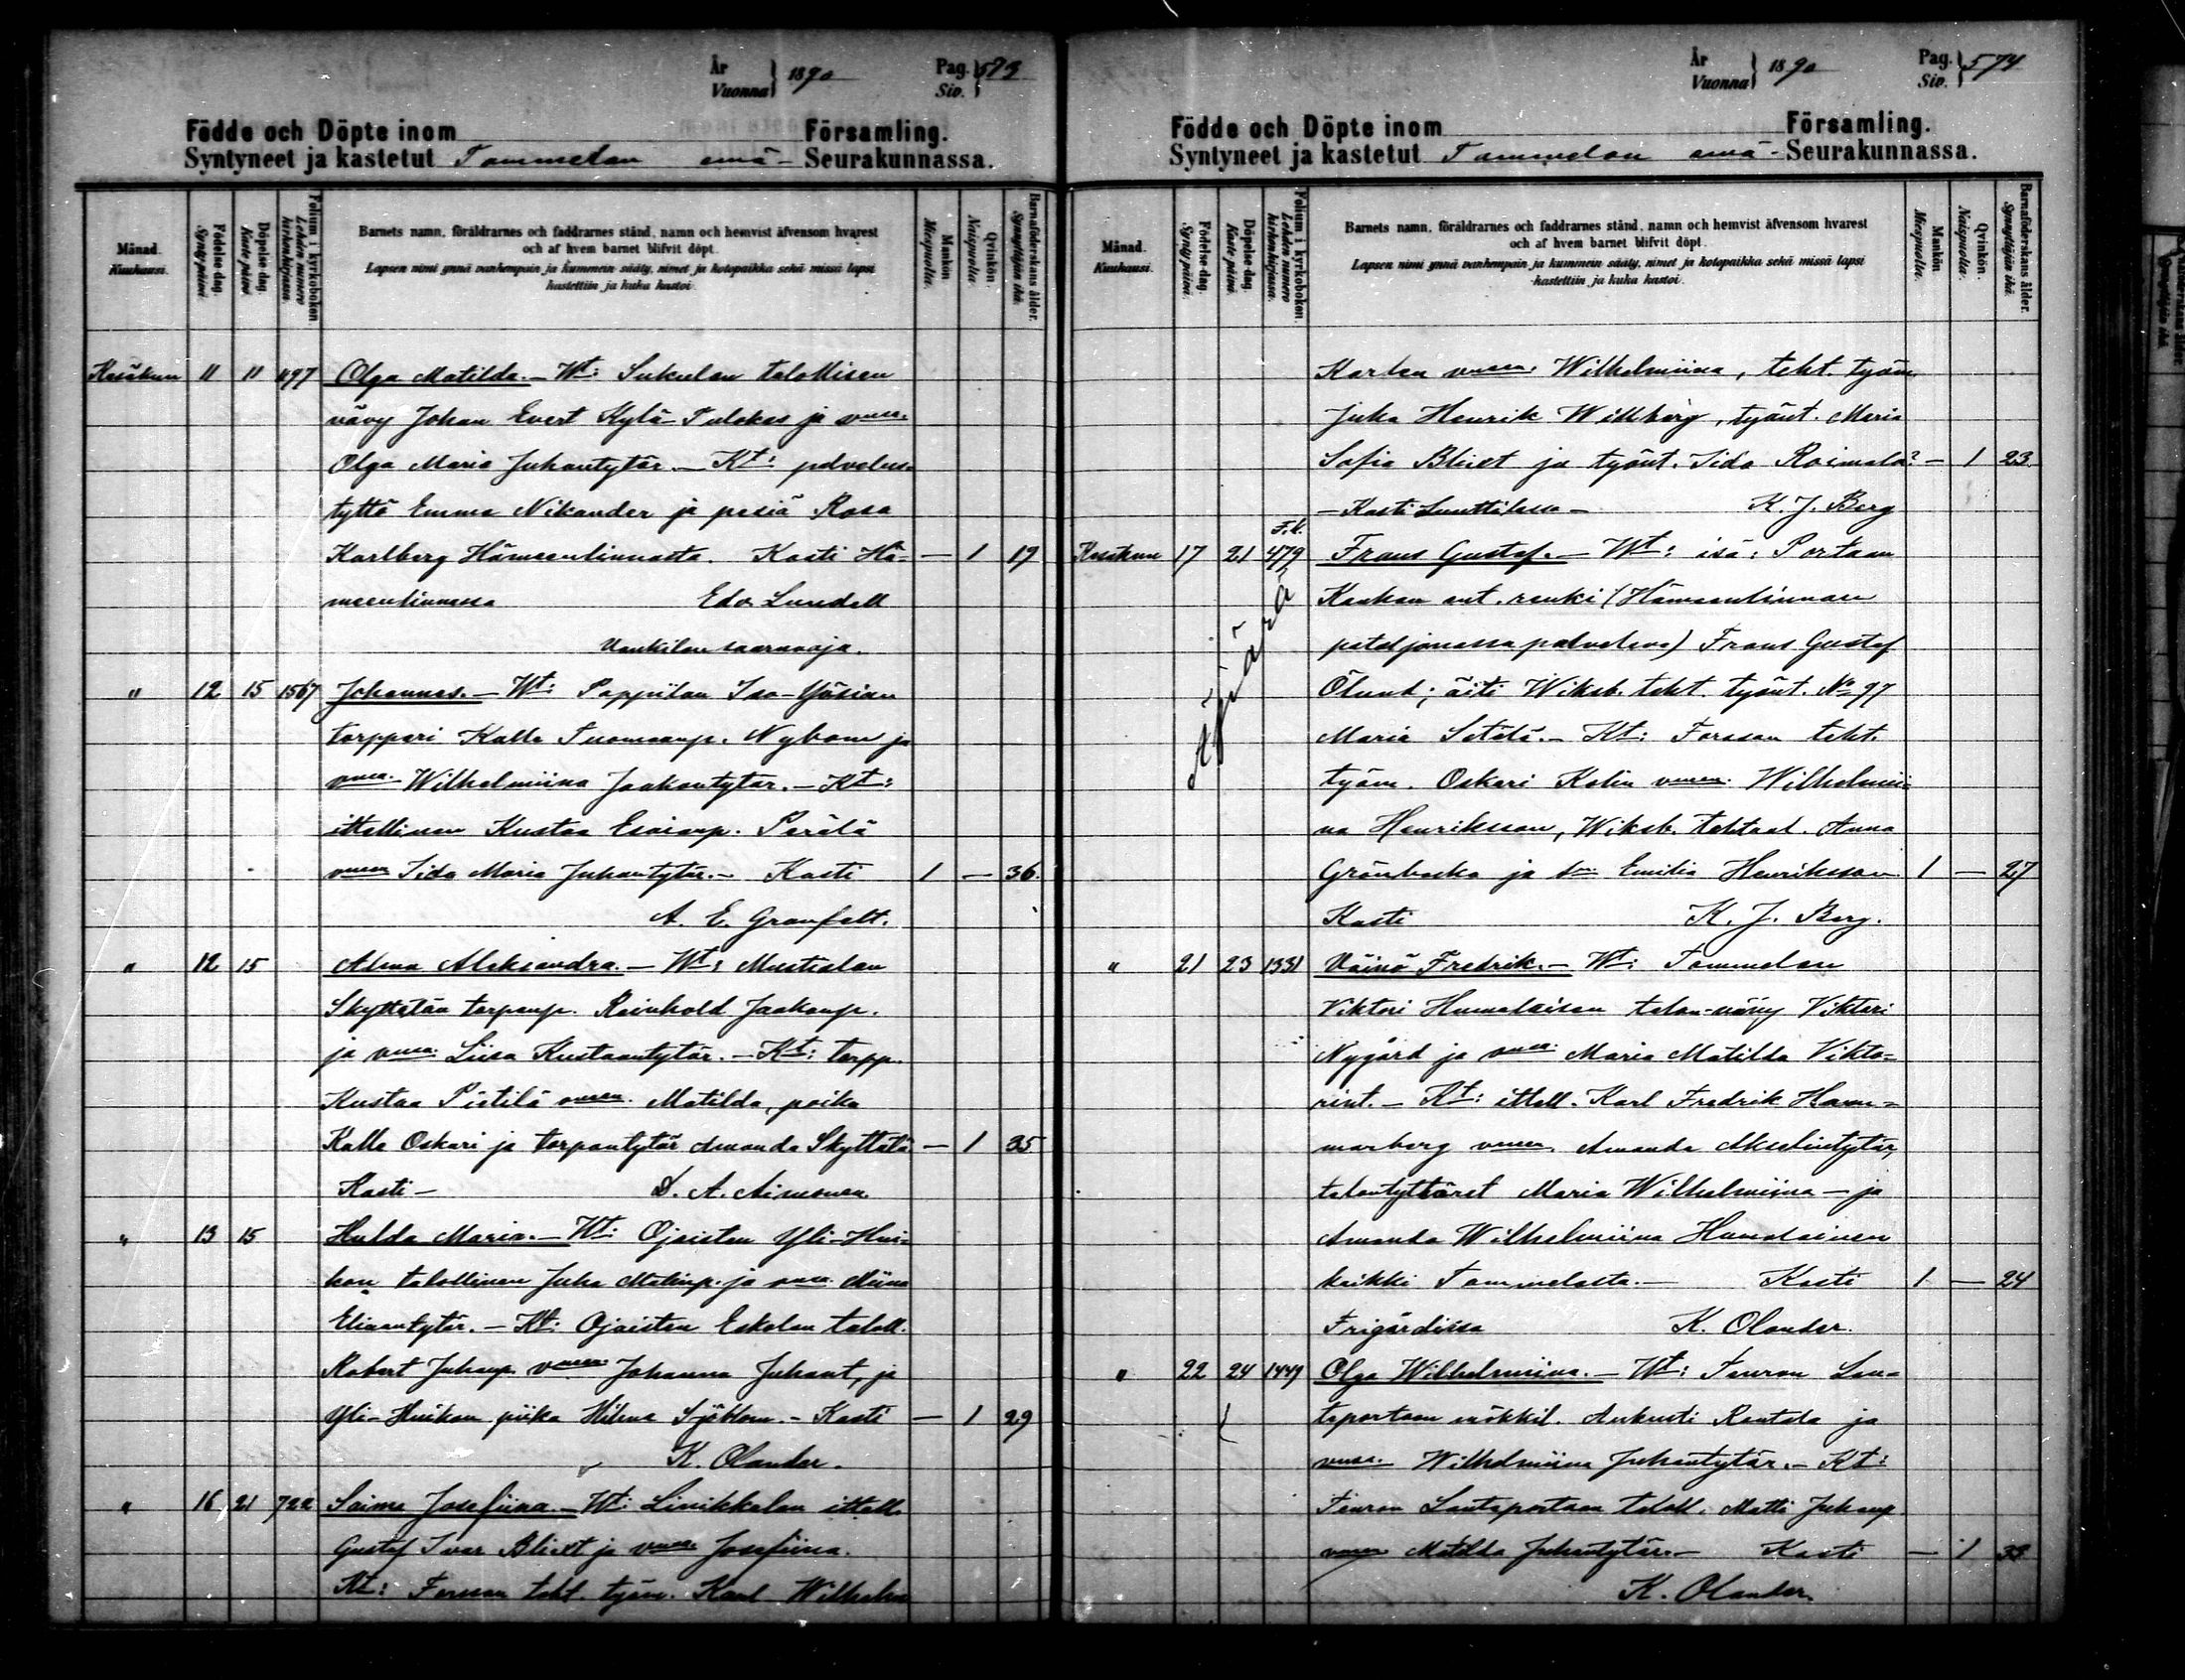 År
Vuonna } 1890
Pag.
Siv. } 573
Födde och Döpte inom Församling.
Syntyneet ja kastetut Tammelan emä- Seurakunnassa.
Månad.
Kuukausi.
Födelse-dag.
Synty päivä.
Döpelse-dag.
Kaste päivä.
Folium i kyrkoboken.
Lehden numero kirkonkirjassa.
Barnets namn, föräldrarnes och faddrarnes stånd, namn och hemvist äfvensom hvarest
och af hvem barnet blifvit döpt.
Lapsen nimi ynnä vanhempain ja kummein sääty, nimet ja kotopaikka sekä missä lapsi
kastettiin ja kuka kastoi.
Mankön
Miespuolia.
Qvinkön
Naispuolia.
Barnaföderskans ålder.
Synnyttäjän ikä.
Kesäkuu 11 11 497 Olga Matilda. – Wt: Sukulan talollisen
vävy Johan Evert Kylä-Pulokas ja vmsa.
Olga Maria Juhantytär. – Kt: palvelus-
tyttö Emma Nikander ja pesiä Rosa
Karlberg Hämeenlinnasta. Kasti Hä- — 1 19
meenlinnassa Edv. Lundell
Vankilan saarnaaja.
" 12 15 1567 Johannes. – Wt: Pappilan Iso-Yösian
torppari Kalle Tuomaanp. Nybom ja
vmsa. Wilhelmiina Jaakontytär. – Kt:
ittellinen Kustaa Esaianp. Perälä
vmsa Iida Maria Juhantytär. – Kasti 1 — 36.
A. E. Granfelt.
" 12 15 Alma Aleksandra. – Wt: Mustialan
Skyttälän torpanp. Reinhold Jaakonp.
ja vmsa. Liisa Kustaantytär. – Kt: torpp.
Kustaa Pietilä vmsa. Matilda, poika
Kalle Oskari ja torpantytär Amanda Skyttälä — 1 35
Kasti – D. A. Aimonen.
" 13 15 Hulda Maria. – Wt: Ojaisten Yli-Hui-
kon talollinen Juha Matinp. ja vmsa. Miina
Eliaantytär. – Kt: Ojaisten Eskolan taloll.
Robert Juhanp. vmsa Johanna Juhant, ja
Yli-Huikon piika Hilma Sjöblom. – Kasti — 1 29
K. Olander.
" 16 21 722 Saima Josefiina. – Wt: Linikkalan ittell.
Gustaf Ivar Blixt ja vmsa Josefiina.
Kt: Forssan teht. työm. Karl Wilhelm
År
Vuonna } 1890
Pag.
Siv. } 574
Födde och Döpte inom Församling.
Syntyneet ja kastetut Tammelan emä- Seurakunnassa.
Månad.
Kuukausi.
Födelse-dag.
Synty päivä.
Döpelse-dag.
Kaste päivä.
Folium i kyrkoboken.
Lehden numero kirkonkirjassa.
Barnets namn, föräldrarnes och faddrarnes stånd, namn och hemvist äfvensom hvarest
och af hvem barnet blifvit döpt.
Lapsen nimi ynnä vanhempain ja kummein sääty, nimet ja kotopaikka sekä missä lapsi
kastettiin ja kuka kastoi.
Mankön
Miespuolia.
Qvinkön
Naispuolia.
Barnaföderskans ålder.
Synnyttäjän ikä.
vmsa. Wilhelmiina, teht. työm.
Juha Henrik Willberg, työnt. Maria
Sofia Blixt ja työnt. Iida Roimala? — 1 23
– Kasti Lunttilassa – K. J. Berg
Kesäkuu 17 21 F.k. 479 Frans Gustaf. – Wt: isä: Portaan
Kaukon ent. renki (Hämeenlinnan
pataljonassa palveleva) Frans Gustaf
Ölund; äiti Wiksb. teht. työnt. No 97
Maria Setälä. – Kt: Forssan teht.
työm. Oskari Kolin vmsa. Wilhelmii-
na Henriksson, Wiksb. tehtaal. Anna
Grönbacka ja Emilia Henriksson 1 — 27
Kasti K. J. Berg.
Äpärä
" 21 23 1331 Väinö Fredrik. – Wt: Tammelan
Viktori Humalaisen talon-vävy Viktori
Nygård ja vmsa. Maria Matilda Vikto-
rint. – Kt: ittell. Karl Fredrik Ham-
marberg vmsa. Amanda Akselintytär,
talontyttäret Maria Wilhelmiina – ja
Amanda Wilhelmiina Humalainen
kaikki Tammelasta. – Kasti 1 — 24
Frigårdissa K. Olander.
" 22 24 1449 Olga Wilhelmiina. – Wt: Teuron Lau-
taportaan mökkil. Aukusti Rantala ja
vmsa. Wilhelmiina Juhantytär. – Kt:
Teuron Lautaportaan taloll. Matti Juhanp.
vmsa Matilda Juhantytär. – Kasti — 1 33
K. Olander.